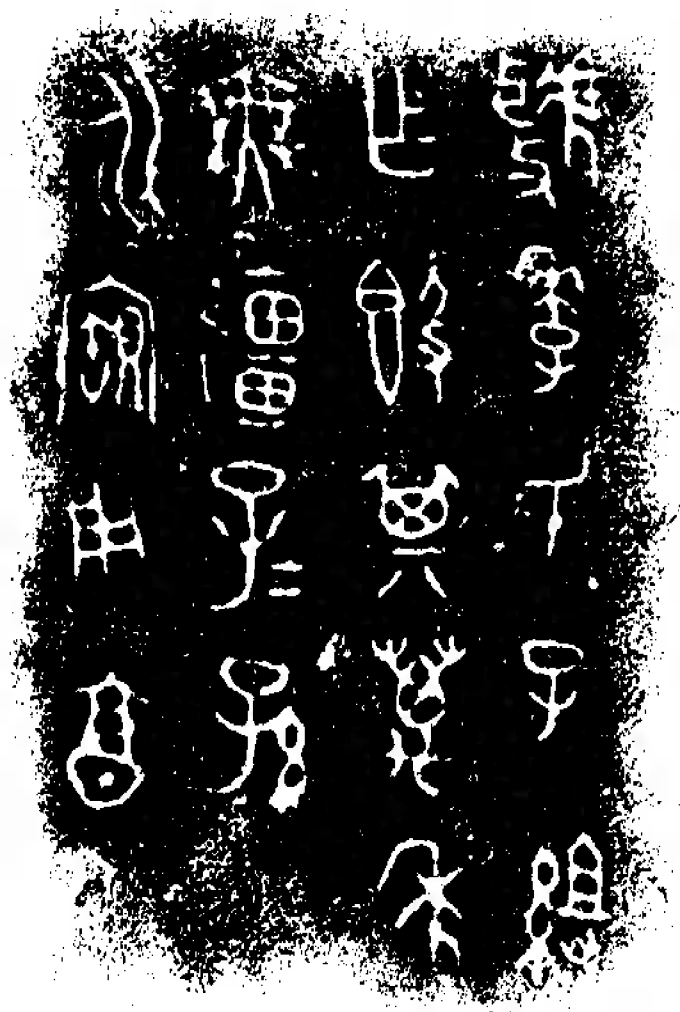 虢季氏子組
乍𣪘其萬年
無疆子=孫
永寶用享